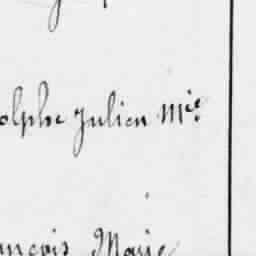 olphe Julien Mie.
ançois Marie